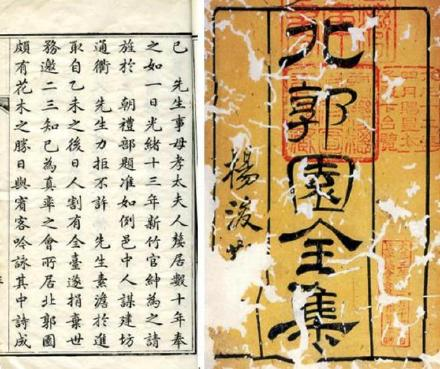 北郭園全集
楊浚
已 先生事母孝太夫人嫠居數十年奉
之如一日光緒十三年新竹官紳為之請
旌於 朝禮部題准如例邑中人謀建坊
通衢 先生力拒不許 先生素澹於進
取自乙未之後日人割有全臺遂捐棄世
務邀二三知己為真率之會所居北郭園
頗有花木之勝日與賓客吟詠其中詩成